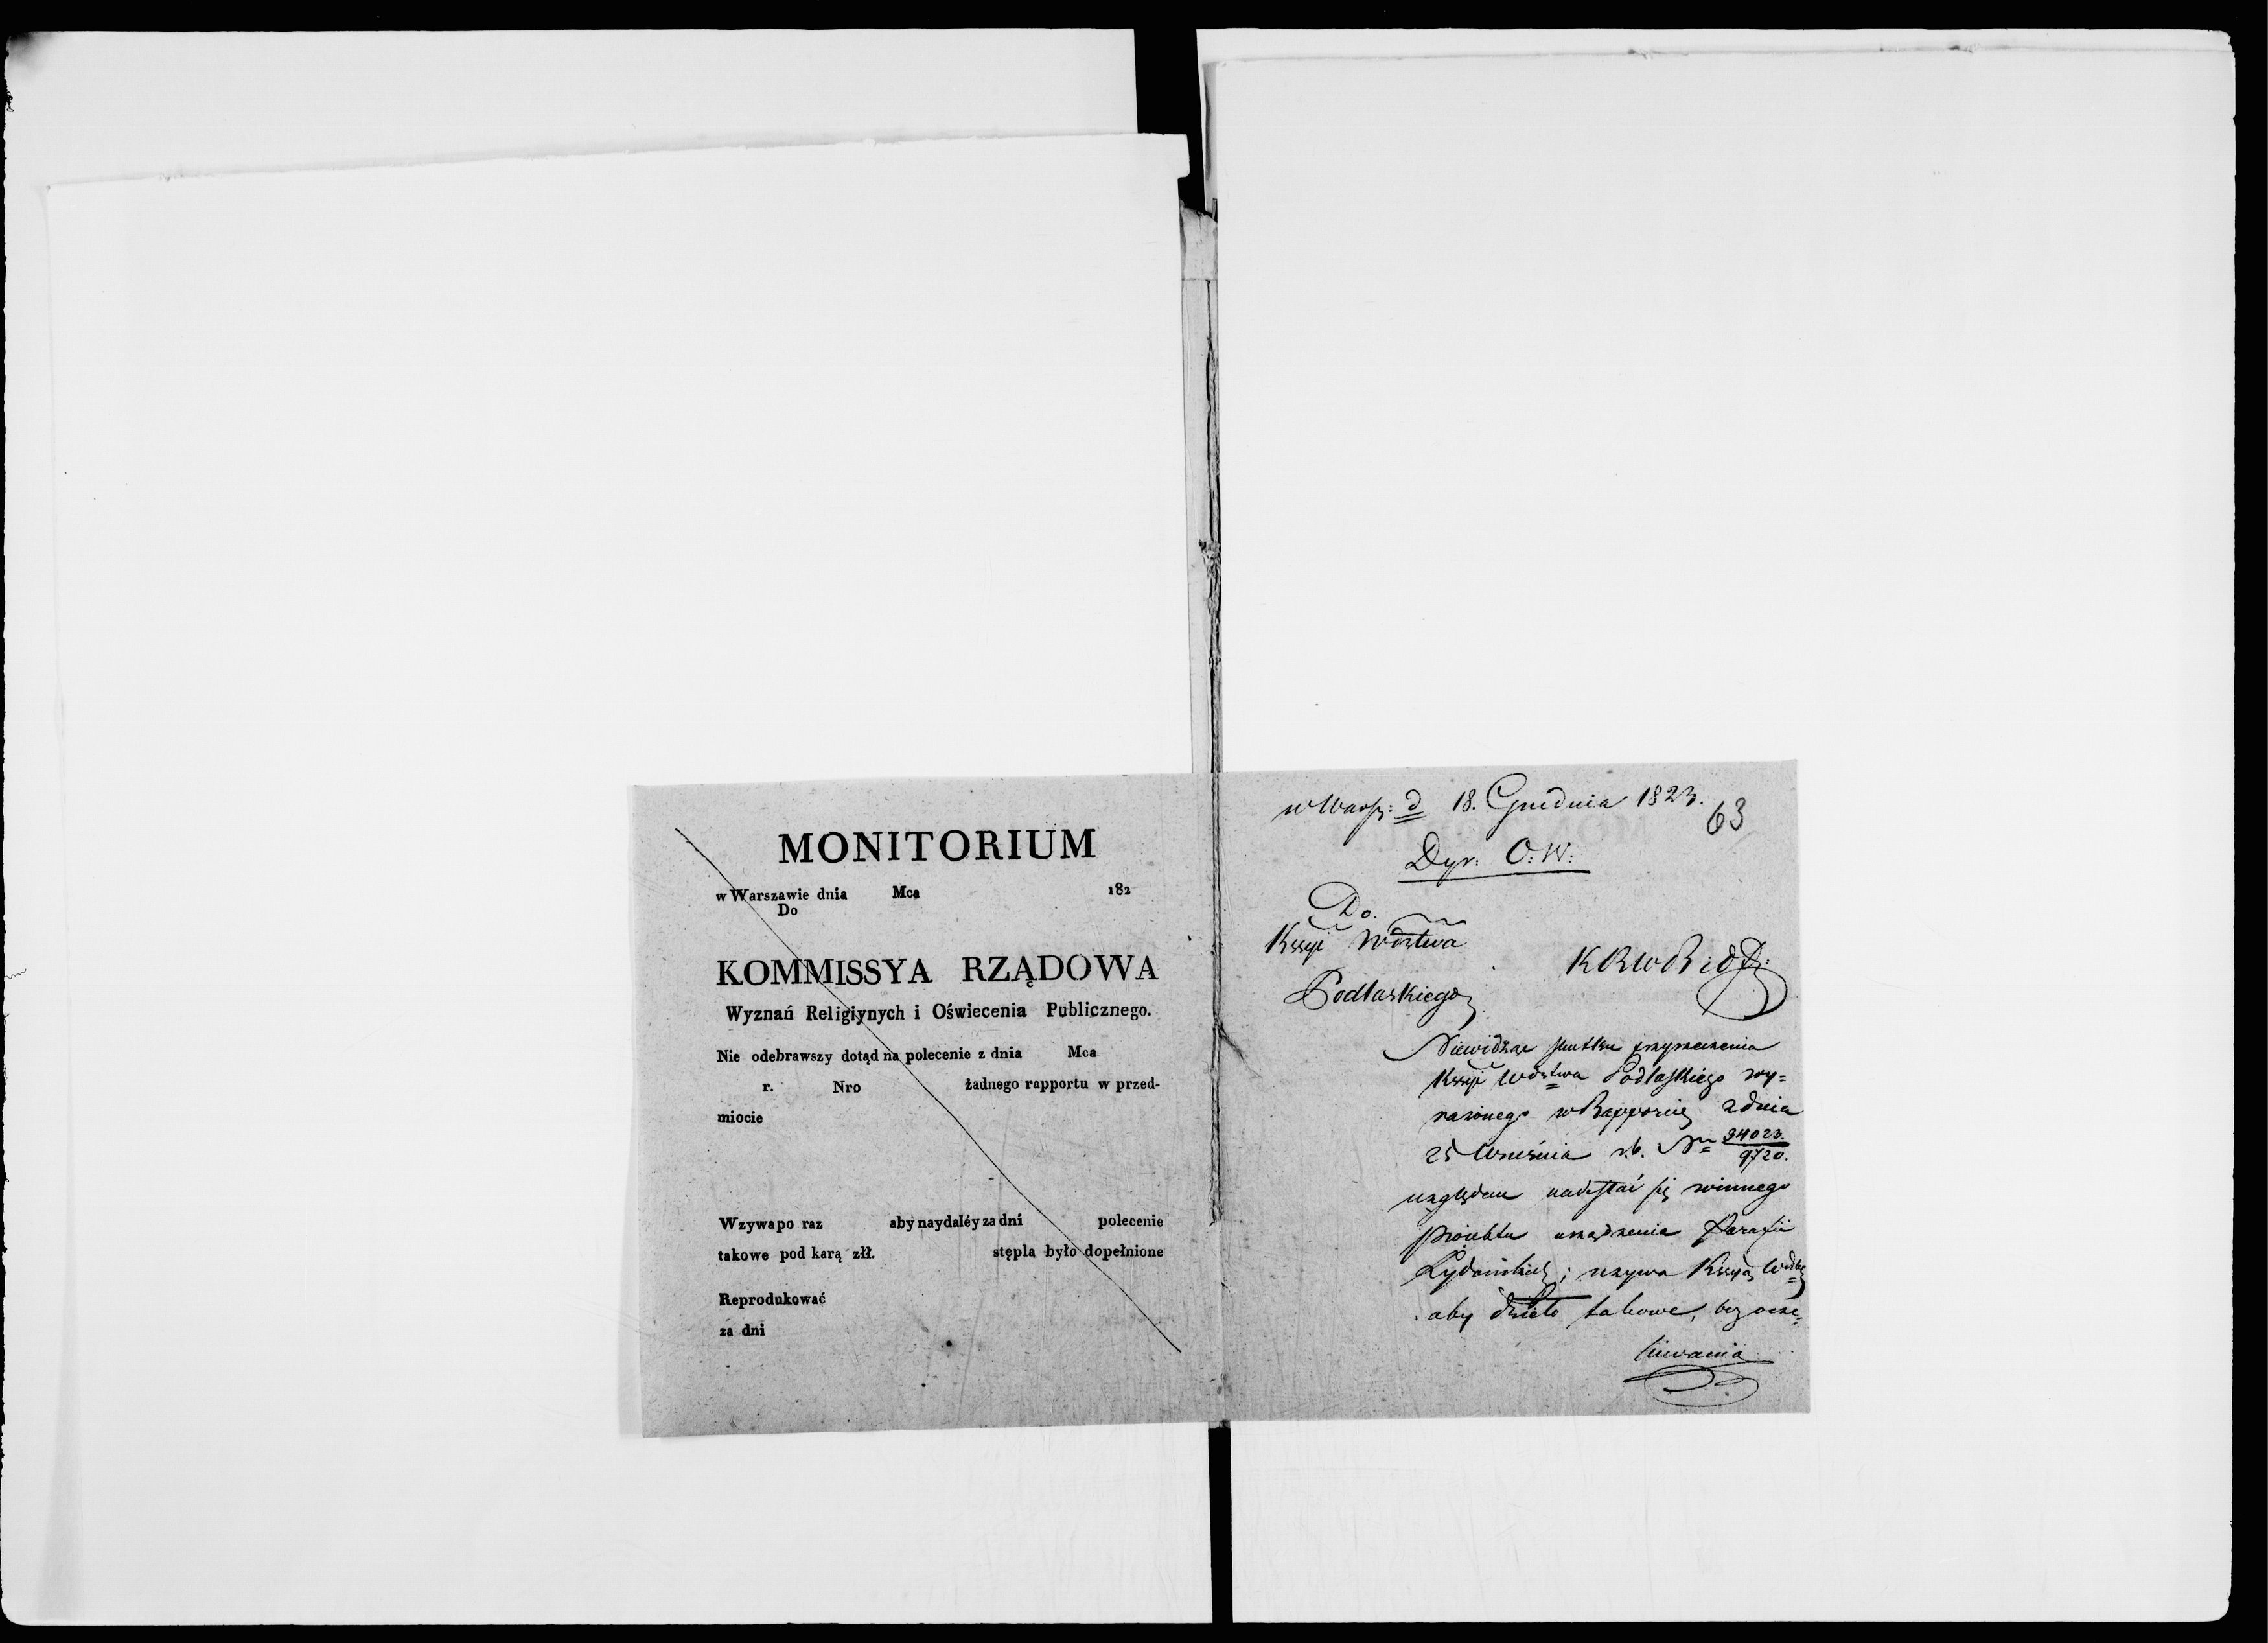 MONITORIUM
w Warszawie dnia Mca 182
Do
KOMMISSYA RZĄDOWA
Wyznań Religiynych i Oświecenia Publicznego.
Nie odebrawszy dotąd na polecenie z dnia Mca
r. Nro żadnego rapportu w przed-
miocie
Wzywa po raz aby naydaléy za dni polecenie
takowe pod karą złł. stępla było dopełnione
Reprodukować
za dni
w Warsz: d 18. Grudnia 1823.
63
Dyr: O: W:
Do.
Kssyi Wdztwa
Podlaskiego
KRWRiOP:
Niewidząc skutku przyrzeczenia
Kssyi Wdztwa Podlaskiego wy=
rażonego w Rapporcie z dnia
25 Września r.b. Nr 34023/9720.
względem nadesłać się winnego
Proiektu urządzenia Parafii
wzywa Kssyą Wdzką
aby dzieło takowe, bez ocze=
kiwania